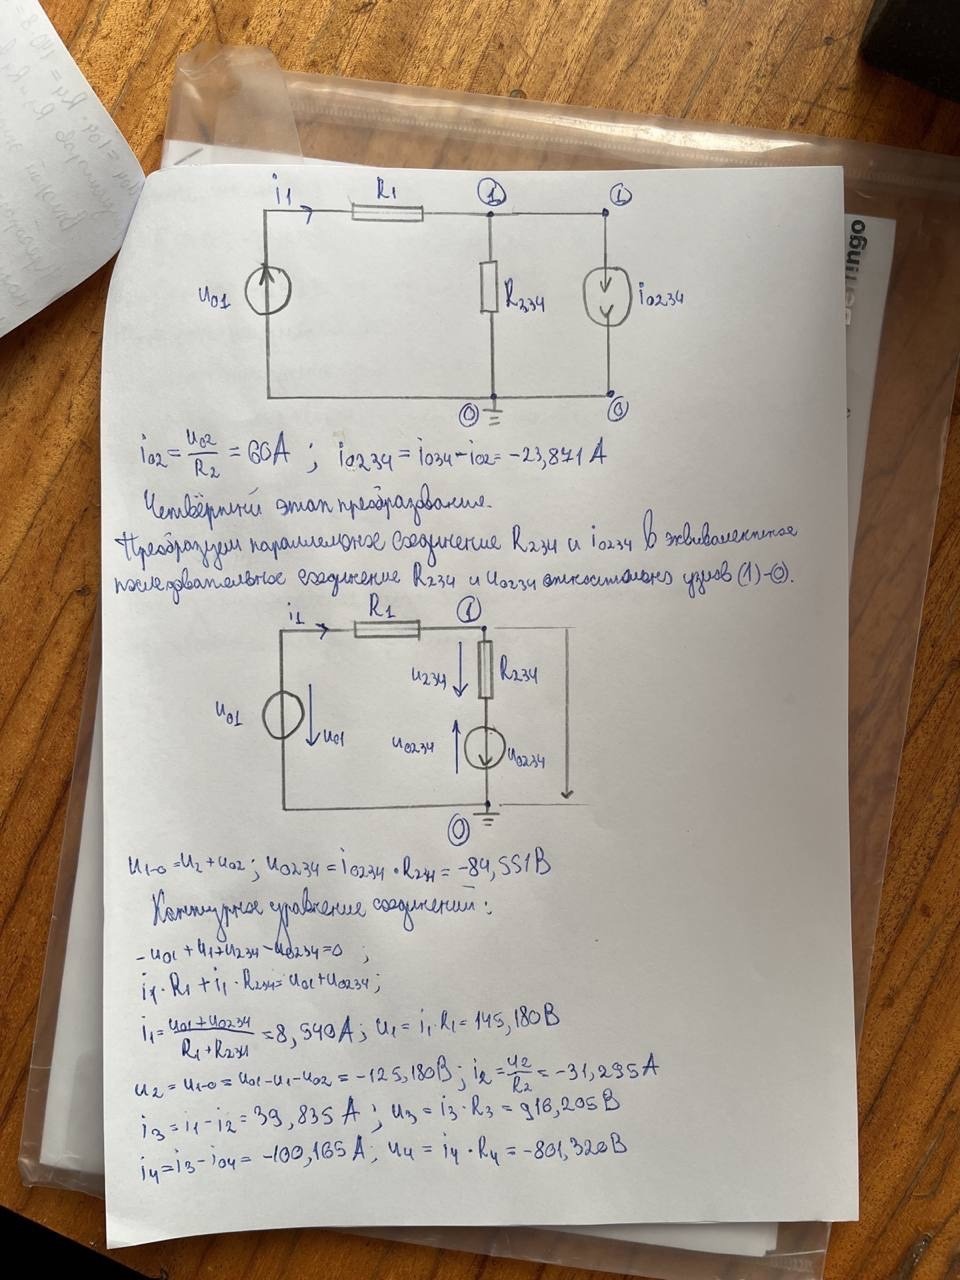 i1
R1
1
1
u01
R234
i0234
0
0
i02 = u02/R2 = 60A ; i0234 = i034 - i02 = -23,871 A
Четвёртый этап преобразование.
Преобразуем параллельное соединение R234 и i0234 в эквивалентное
последовательное соединение R234 и u0234 относительно узлов (1)-0.
i1
R1
1
u234
R234
u01
u01
u0234
u0234
0
u1-0 = u2 + u02 ; u0234 = i0234 · R234 = -84,551 В
Контурное уравнение соединений:
-u01 + u1 + u234 - u0234 = 0 ;
i1 · R1 + i1 · R234 = u01 + u0234 ;
i1 = u01 + u0234 / R1 + R234 = 8,540 A ; u1 = i1 · R1 = 145,180 В
u2 = u1-0 = u01 - u1 - u02 = -125,180 В ; i2 = u2/R2 = -31,295 A
i3 = i1 - i2 = 39,835 A ; u3 = i3 · R3 = 916,205 В
i4 = i3 - i04 = -100,165 A ; u4 = i4 · R4 = -801,320 В